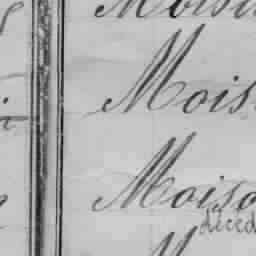 Moisi
Mois
Moiso
décéd